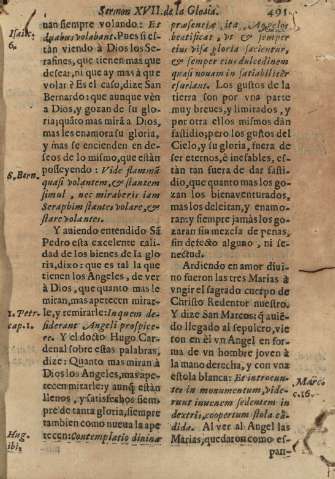 Sermon XVII. de la Gloria. 491
Isaiæ.
6.
S. Bern.
1. Petr.
cap. 1.
Hug.
ibi.
uan siempre volando: Et
duabus volabant. Pues si es-
tàn viendo à Dios los Se-
rafines, que tienen mas que
desear, ni que ay mas à que
volar? Es el caso, dize San
Bernardo: que aunque vèn
à Dios, y gozan de su glo-
ria; quãto mas mirã à Dios,
mas les enamora su gloria,
y mas se encienden en de-
seos de lo mismo, que estàn
posseyendo: Vide flammã
quasi volantem, & stantem
simul, nec miraberis iam
Seraphim stantes volare, &
stare volantes.
Y auiendo entendido Sã
Pedro esta excelente cali-
dad de los bienes de la glo
ria, dixo: que es tal la que
tienen los Angeles, de ver
à Dios, que quanto mas le
mican, mas apetecen mirar-
le, y remirarle: In quem de-
siderant Angeli prospice-
re. Y el docto Hugo Car-
denal sobre estas palabras,
dize: Quanto mas miran à
Dios los Angeles, mas ape-
tecen mirarle: y aunq̃ estàn
llenos, y satisfechos siem
pre de tanta gloria, siempre
tambien como nueua la ape
tecen: Contemplatio diuinæ
præsentiæ ita Angelos
beatificat, vt & semper
eius visa gloria sacientur,
& semper eius dulcedinem
quasi nouam insatiabiliter
esuriant. Los gustos de la
tierra son por vna parte
muy breues, y limitados, y
por otra ellos mismos dàn
fastidio; pero los gustos del
Cielo, y su gloria, fuera de
ser eternos, è inefables, es-
tàn tan fuera de dar fasti-
dio, que quanto mas los go-
zan los bienaventurados,
mas los deleitan, y enamo-
ran: y siempre jamàs los go-
zaràn sin mezcla de penas,
sin defecto alguno, ni se-
nectud.
Ardiendo en amor diui-
no fueron las tres Marias à
vngir el sagrado cuerpo de
Christo Redentor nuestro.
Y dize San Marcos: q̃ auiẽ-
do llegado al sepulcro, vie
ron en èl vn Angel en for-
ma de vn hombre joven à
la mano derecha, y con vna
estola blanca: Et introeun-
tes in monumentum, vide-
runt iuuenem sedentem in
dextris, coopertum stola cã
dida. Al ver al Angel las
Marias, quedaron como es-
pan-
Marcò
c. 16.